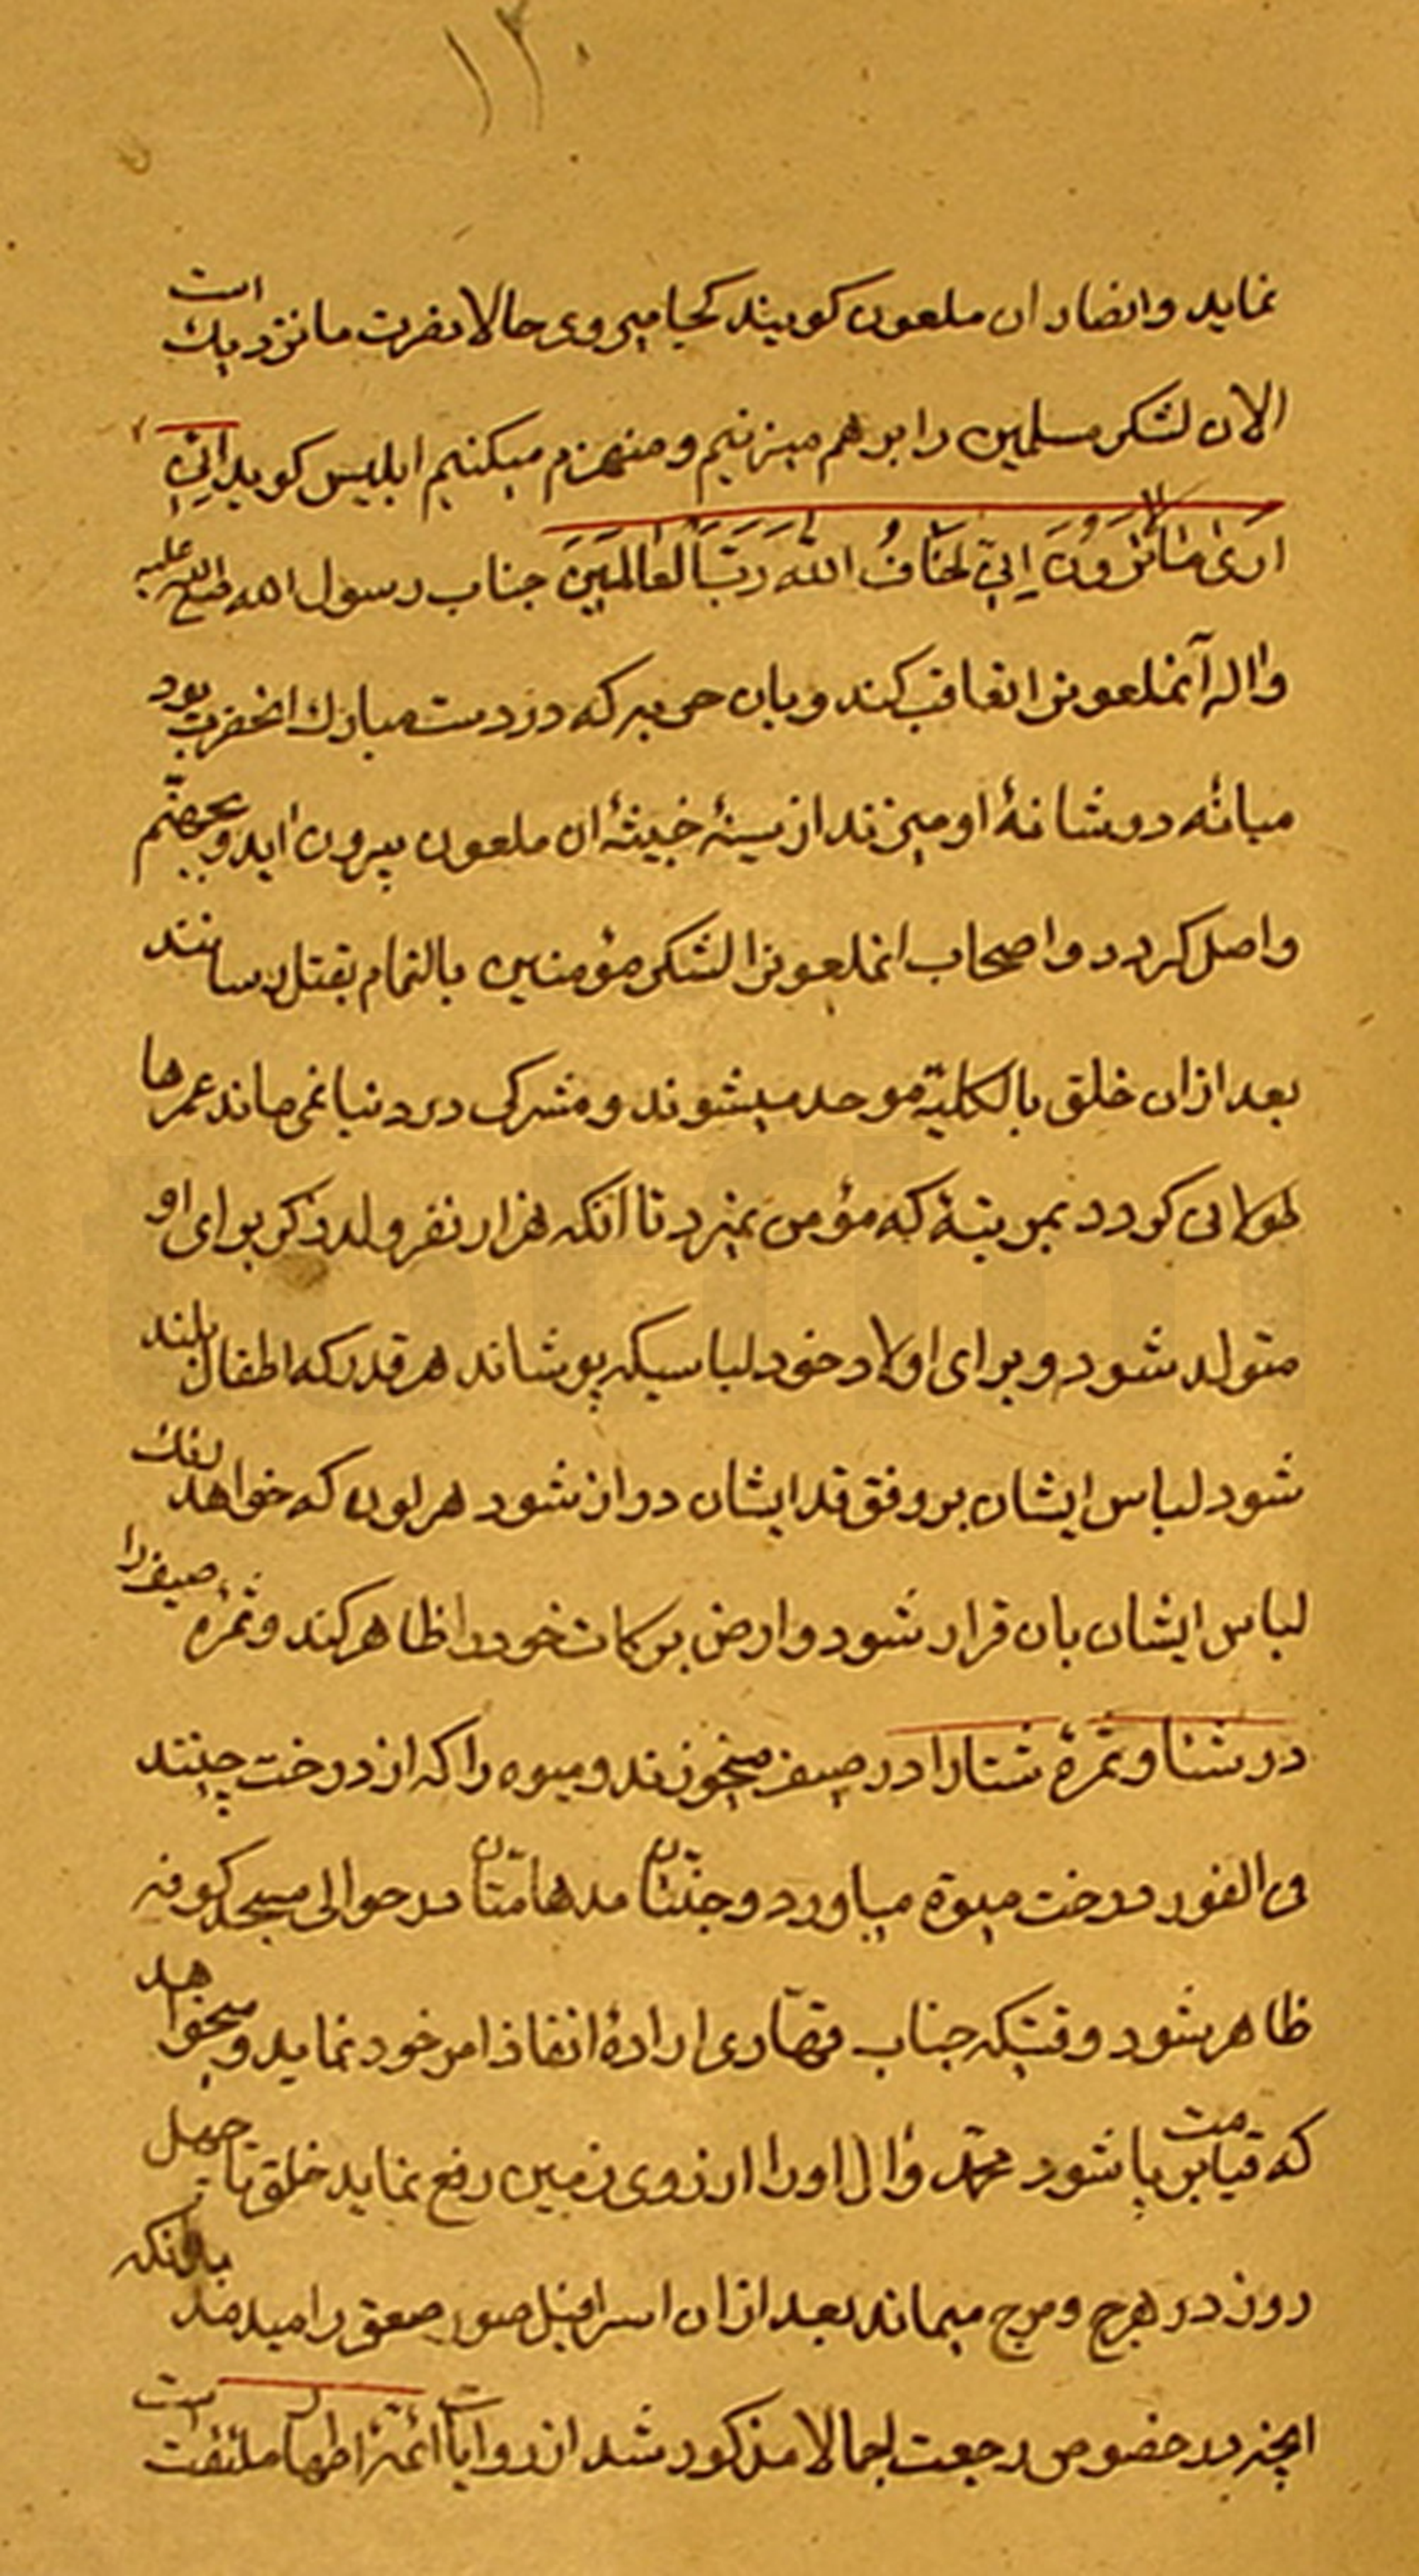 ۱۳۰
نماید و انصار ان ملعون کویند کجا میروی حالا نصرت ما نزدیك است
الان لشکر مسلمین را بر هم میزنیم و منهزم میکنیم ابلیس کوید اِنّی
اَرَیٰ مَا لَا تَرَوْنَ اِنّی اَخَافُ اللّٰهَ رَبَّ الْعَالَمِینَ جناب رسول الله صلی الله علیه
و اله آنملعونرا تعاقب کند و بان حربه که در دست مبارك انحضرت بود
میانهٔ دو شانهٔ او میزند از سینهٔ خبیثهٔ ان ملعون بیرون اید و بجهنّم
واصل کردد و اصحاب انملعونرا لشکر مؤمنین بالتمام بقتل رسانند
بعد از ان خلق بالکلیّه موحد میشوند و مشرک در دنیا نمی ماند عمرها
طولانی کردد بمرتبهٔ که مؤمن نمیرد تا انکه هزار نفر ولد ذکر برای او
متولد شود و برای اولاد خود لباسیکه پوشاند هر قدر که اطفال بلند
شود لباس ایشان بر وفق قد ایشان دراز شود هر لون که خواهد لفك
لباس ایشان بان قرار شود و ارض برکات خود را ظاهر کند و ثمرهٔ صیف را
در شتا و ثمرهٔ شتا را در صیف میخورند و میوه را که از درخت چینند
فی الفور درخت میوه میاورد و جنّتان مدهامّتان در حوالی مسجد کوفه
ظاهر شود وقتیکه جناب قهّاری ارادهٔ انفاذ امر خود نماید و میخواهد
که قیامت بر پا شود محمّد و ال او را از روی زمین رفع نماید خلق تا چهل
روز در هرج و مرج میماند بعد از ان اسرافیل صور صعق را میدمد بدانکه
انچه در خصوص رجعت اجمالا مذکور شد از روایات ائمّهٔ اطهار ملتفت است